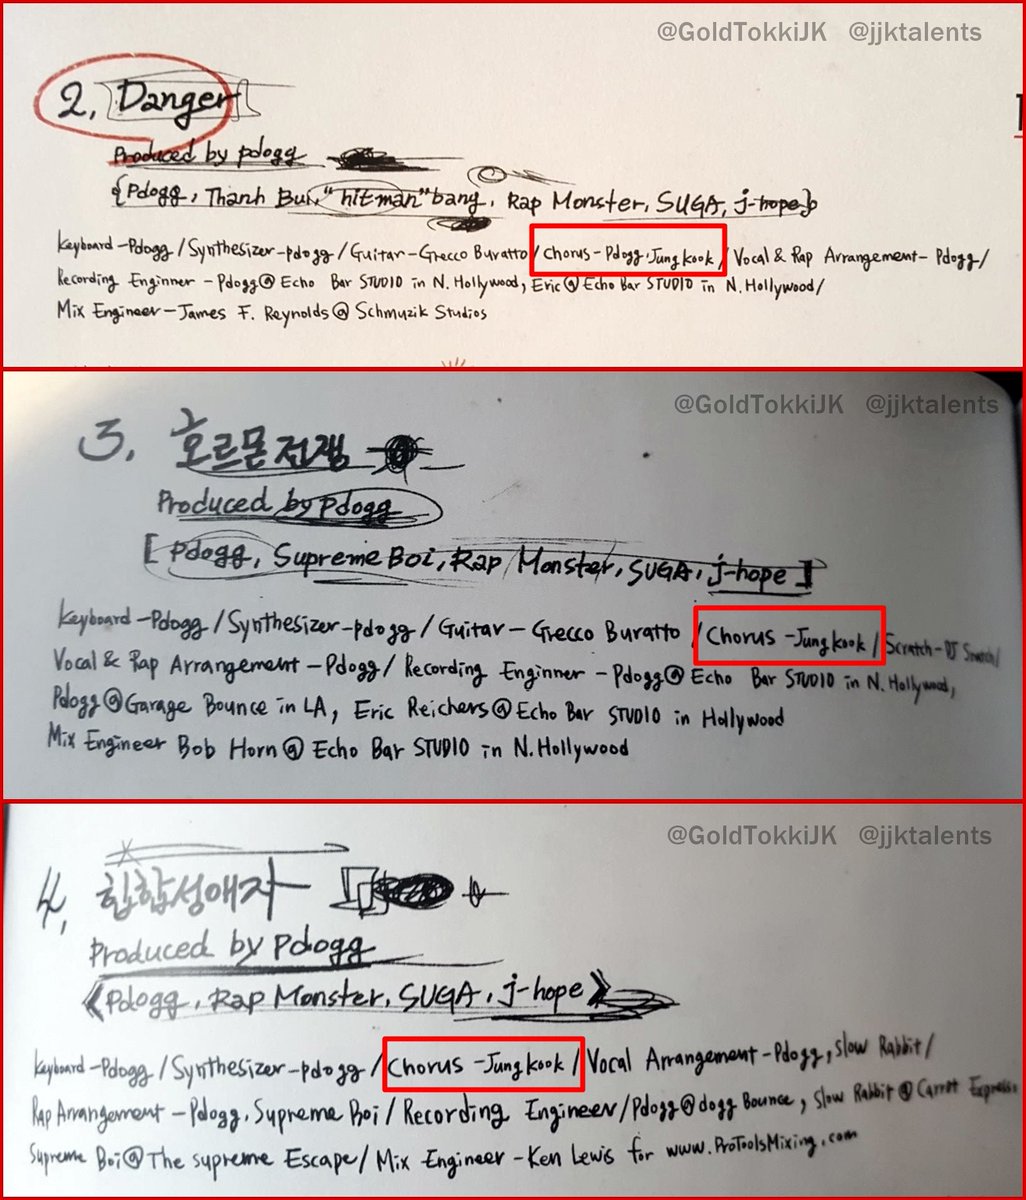 @GoldTokkiJK @jjktalents
2. Danger
Produced by pdogg
{Pdogg, Thanh Bui, "hitman"bang, Rap Monster, SUGA, j-hope}
Keyboard-Pdogg/Synthesizer-pdogg/Guitar-Grecco Buratto/Chorus-Pdogg, Jung kook/Vocal & Rap Arrangement-Pdogg/
Recording Enginner-Pdogg@Echo Bar STUDIO in N. Hollywood, Eric@Echo Bar STUDIO in N. Hollywood/
Mix Engineer-James F. Reynolds@Schmuzik Studios
@GoldTokkiJK @jjktalents
3. 호르몬전쟁
Produced by pdogg
[Pdogg, Supreme Boi, Rap Monster, SUGA, j-hope]
Keyboard-Pdogg/Synthesizer-pdogg/Guitar-Grecco Buratto/Chorus-Jung kook/Scratch-DJ
Vocal & Rap Arrangement-Pdogg/Recording Enginner-Pdogg@Echo Bar STUDIO in N. Hollywood,
Pdogg@Garage Bounce in LA, Eric Reichers@Echo Bar STUDIO in Hollywood
Mix Engineer Bob Horn@Echo Bar STUDIO in N. Hollywood
@GoldTokkiJK @jjktalents
4. 힙합성애자
Produced by Pdogg
《Pdogg, Rap Monster, SUGA, j-hope》
Keyboard-Pdogg/Synthesizer-pdogg/Chorus-Jung kook/Vocal Arrangement-Pdogg, Slow Rabbit/
Rap Arrangement-Pdogg, Supreme Boi/Recording Engineer/Pdogg@dogg Bounce, Slow Rabbit@Carrot Express
Supreme Boi@The supreme Escape/Mix Engineer-Ken Lewis for www.ProToolsMixing.com